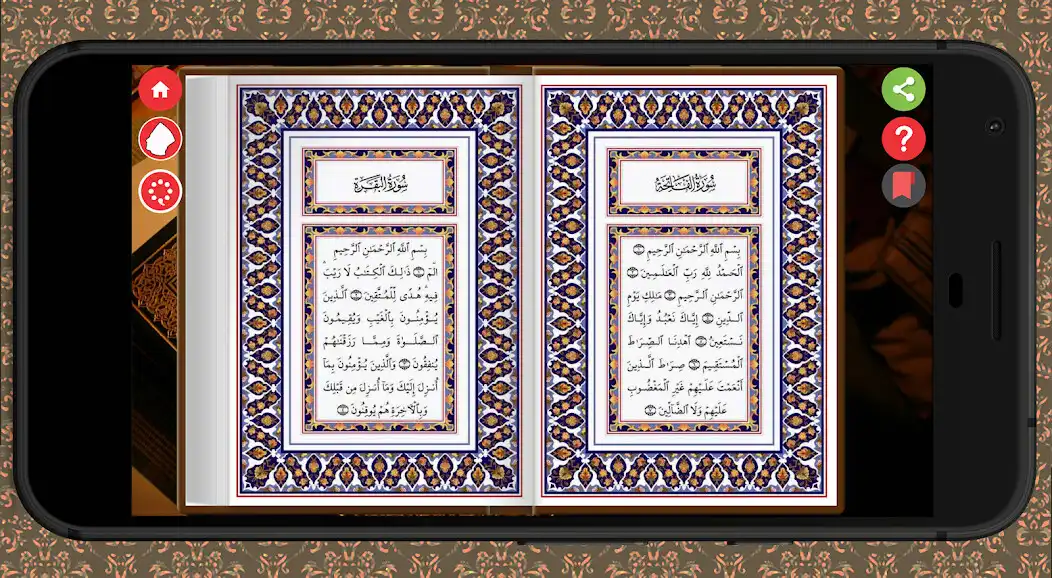 سُورَةُ الفَاتِحَةِ
بِسْمِ ٱللَّهِ ٱلرَّحْمَٰنِ ٱلرَّحِيمِ
ٱلْحَمْدُ لِلَّهِ رَبِّ ٱلْعَٰلَمِينَ
ٱلرَّحْمَٰنِ ٱلرَّحِيمِ مَٰلِكِ يَوْمِ
ٱلدِّينِ إِيَّاكَ نَعْبُدُ وَإِيَّاكَ
نَسْتَعِينُ ٱهْدِنَا ٱلصِّرَٰطَ
ٱلْمُسْتَقِيمَ صِرَٰطَ ٱلَّذِينَ
أَنْعَمْتَ عَلَيْهِمْ غَيْرِ ٱلْمَغْضُوبِ
عَلَيْهِمْ وَلَا ٱلضَّآلِّينَ
سُورَةُ البَقَرَةِ
بِسْمِ ٱللَّهِ ٱلرَّحْمَٰنِ ٱلرَّحِيمِ
الٓمٓ ذَٰلِكَ ٱلْكِتَٰبُ لَا رَيْبَ
فِيهِ هُدًى لِلْمُتَّقِينَ ٱلَّذِينَ
يُؤْمِنُونَ بِٱلْغَيْبِ وَيُقِيمُونَ
ٱلصَّلَوٰةَ وَمِمَّا رَزَقْنَٰهُمْ
يُنفِقُونَ وَٱلَّذِينَ يُؤْمِنُونَ بِمَآ
أُنزِلَ إِلَيْكَ وَمَآ أُنزِلَ مِن قَبْلِكَ
وَبِٱلْأَخِرَةِ هُمْ يُوقِنُونَ
?